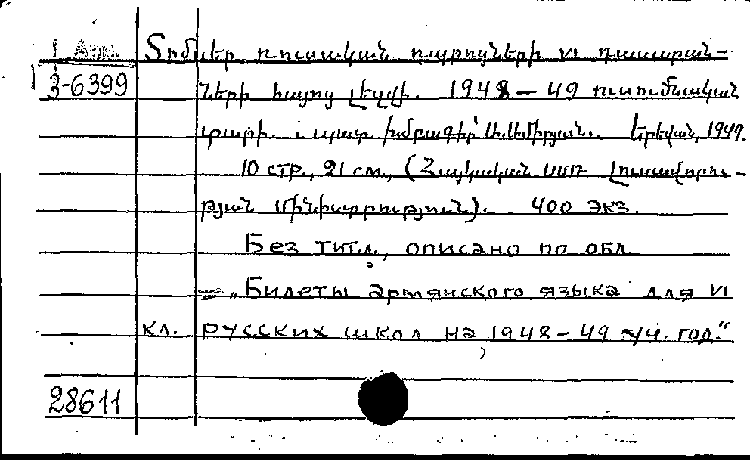 Տոմսեր ռուսական դպրոցների VI դասարան-
3-6399 ների հայոց լեզվի. 1948-49 ուսումնական
տարի. պատ. խմբագիր Երևան, 1949.
10 стр., 21 см., (Հայկական ՍՍՌ Լուսավորու-
թյան Մինիստրություն). 400 экз.
Без титл., описано по обл.
= „Билеты армянского языка для VI
кл. русских школ на 1948-49 уч. год.“
28611